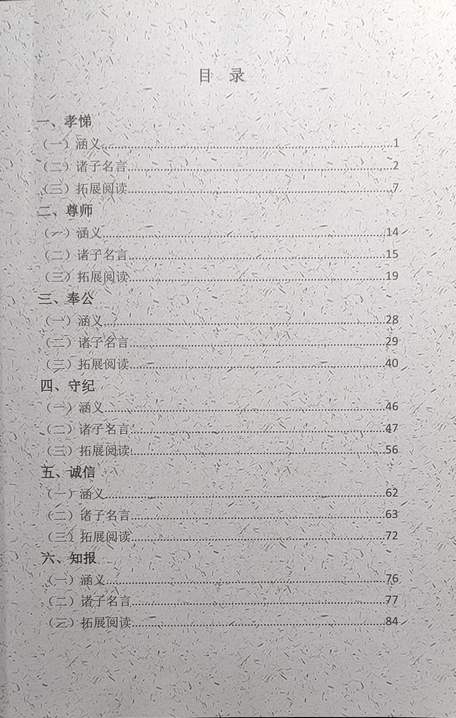 目 录
一、孝悌
（一）涵义........................1
（二）诸子名言........................2
（三）拓展阅读........................7
二、尊师
（一）涵义........................14
（二）诸子名言........................15
（三）拓展阅读........................19
三、奉公
（一）涵义........................28
（二）诸子名言........................29
（三）拓展阅读........................40
四、守纪
（一）涵义........................46
（二）诸子名言........................47
（三）拓展阅读........................56
五、诚信
（一）涵义........................62
（二）诸子名言........................63
（三）拓展阅读........................72
六、知报
（一）涵义........................76
（二）诸子名言........................77
（三）拓展阅读........................84